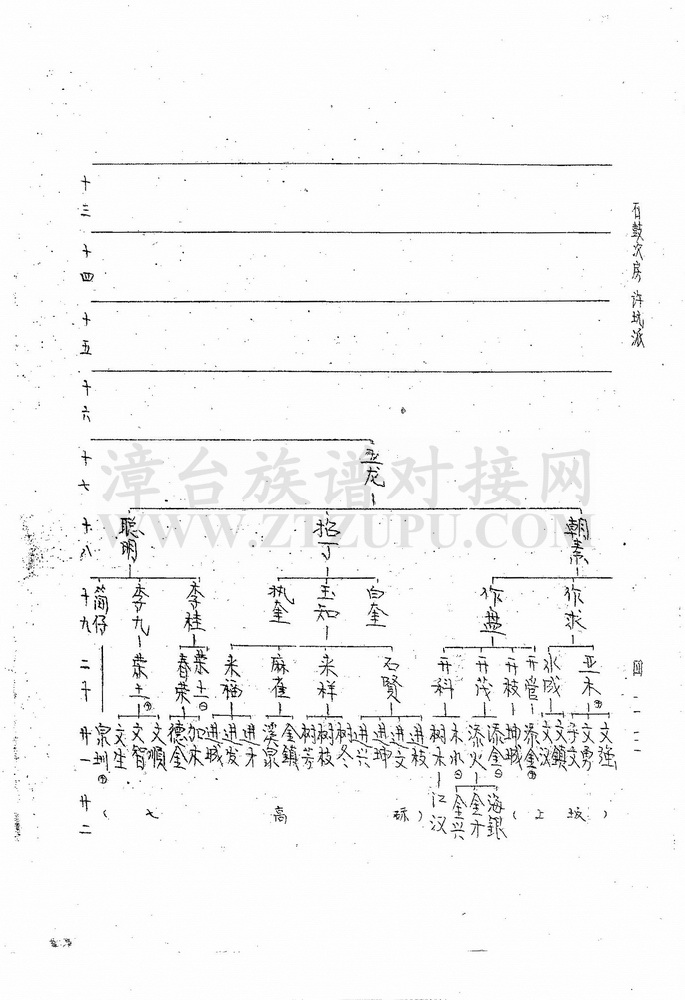 石鼓次房 许坑派
四一二一
十三
十四
十五
十六
十七
十八
十九
二十
廿一
廿二
亚龙
朝素
招丁
聪明
作求
作盘
白奎
玉知
执奎
李桂
李九
简仔
亚木
水成
开管
开枝
开茂
开科
石賢
来祥
麻雀
来福
荣土
春荣
荣土
文强
文勇
子文
文鎮
文汉
添金
坤城
添金
添火
木水
树木
进枝
进文
进坤
进兴
树冬
树枝
树芳
金鎮
溪泉
进才
进发
进城
加木
德金
文順
文智
文生
泉圳
海銀
金才
金兴
江汉
(上坂)
(七高际)
漳台族谱对接网
WWW.ZTZUPU.COM